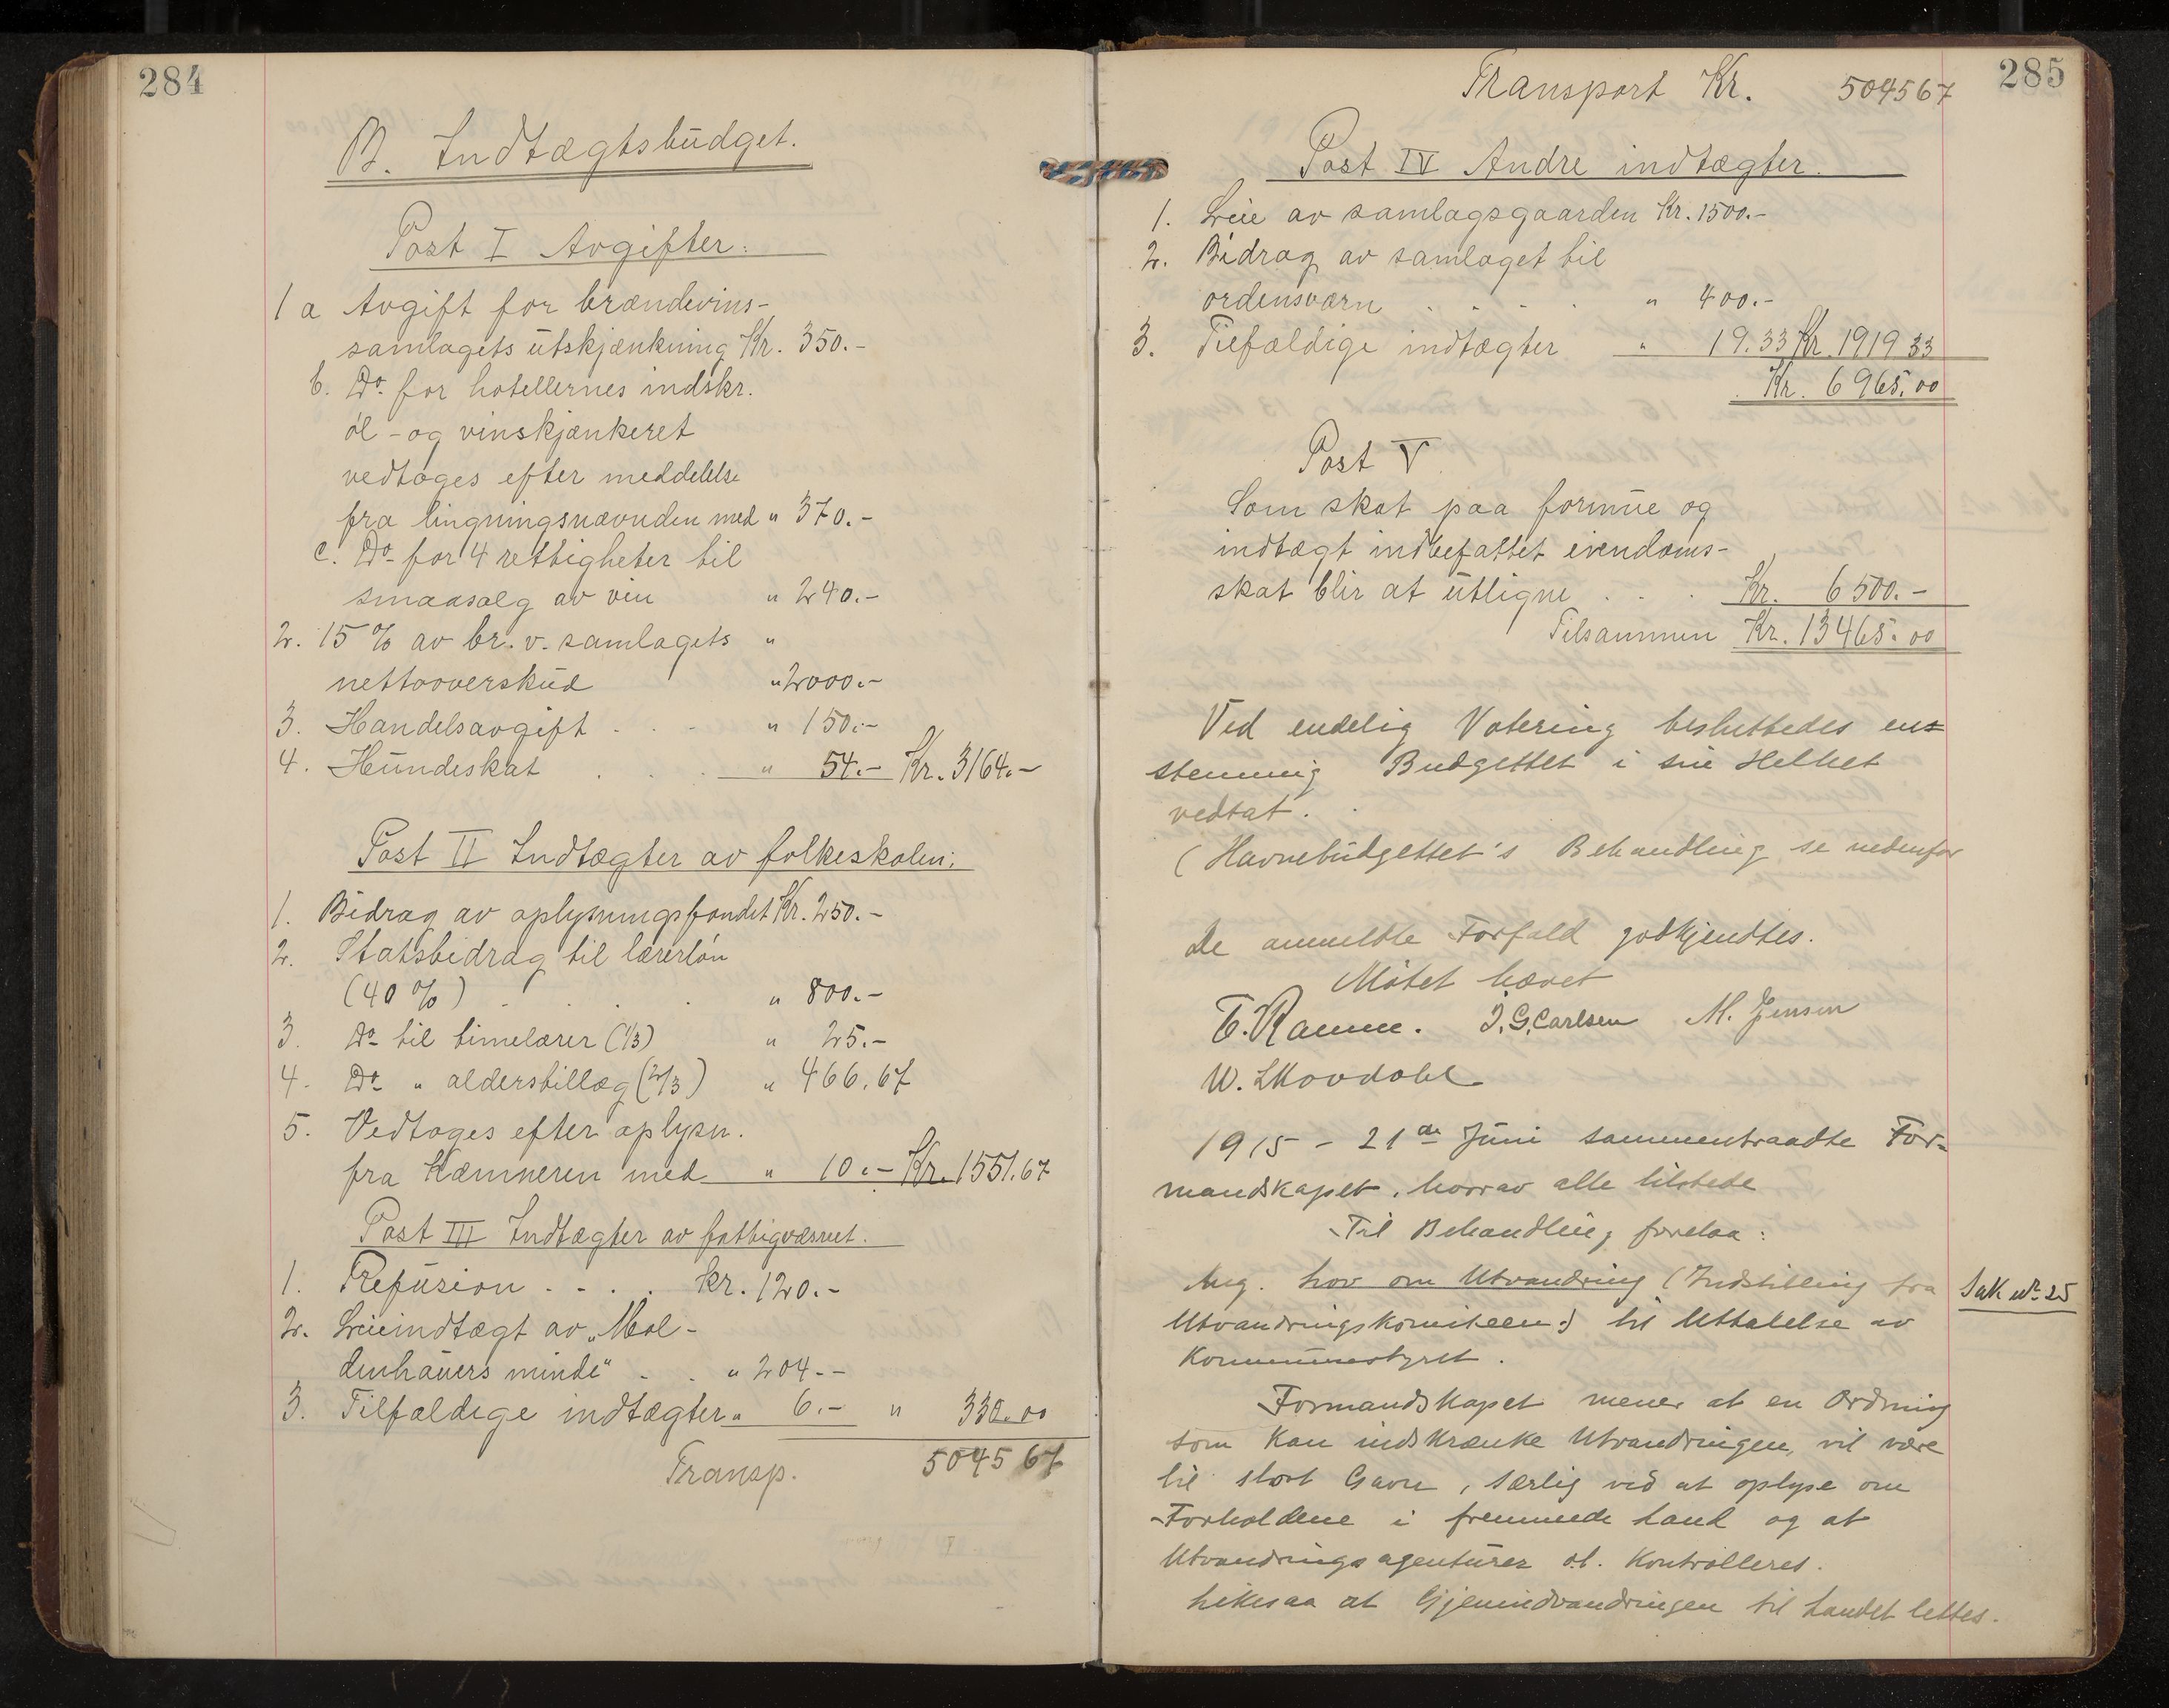 284
B. Indtægtsbudget.
Post I Avgifter:
1 a Avgift for brændevins-
samlagets utskjænkning Kr. 350.-
b. Do. for hotellernes indskr.
øl - og vinskjænkeret
vedtages efter meddelelse
fra lingningsnævnden med " 370.-
c. Do. for 4 rettigheter til
smaasalg av vin " 240.-
2. 15 % av br. v. samlagets "
nettooverskud " 2000.-
3. Handelsavgift . . - " 150.-
4. Hundeskat . . . " 54.- Kr. 3164.-
Post II Indtægter av folkeskolen:
1. Bidrag av oplysningsfondet Kr. 250.-
2. Statsbidrag til lærerløn
(40 %) . . . . " 800.-
3. Do til timelærer (1/3) " 25.-
4. Do " alderstillæg (2/3) " 466.67
5. Vedtages efter oplysn.
fra Kæmneren med " 10.- Kr. 1551.67
Post III Indtægter av fattigvæsnet.
1. Refusion . - . . kr. 120.-
2. Leieindtægt av "Mol-
denhauers minde" - . " 204.-
3. Tilfældige indtægter " 6.- " 330.00
Transp. 5045 67
285
Transport Kr. 504567
Post IV Andre indtægter.
1. Leie av samlagsgaarden Kr. 1500.-
2. Bidrag av samlaget til
ordensværn . . - . " 400.-
3. Tilfældige indtægter " 19.33 Kr. 1919 33
Kr. 6965.00
Post V
Som skat paa formue og
indtægt indbefattet eiendoms-
skat blir at utligne . . . Kr. 6500.-
Tilsammen Kr. 13465.00
Ved endelig Votering besluttedes en-
stemmig Budgettet i sin Helhet
vedtat.
(Havnebudgettet's Behandling se nedenfor
De anmeldte Forfald godkjendtes.
Møtet hævet
T. Ramm. J. G. Carlsen M. Jensen
W.
1915 - 21de Juni sammentraadte For-
mandskapet, hvorav alle tilstede
Til Behandling forelaa:
Ang. Lov om Utvandring (Indstilling fra
Sak No 25
Utvandringskomiteen:) til Uttalelse av
Kommunestyret.
Formandskapet mener at en Ordning
som kan indskrænke Utvandringen, vil være
til stort Gavn, særlig ved at oplyse om
Forholdene i fremmede Land og at
Utvandringsagenturer o.l. Kontrolleres.
Likesaa at Gjenindvandringen til Landet lettes.